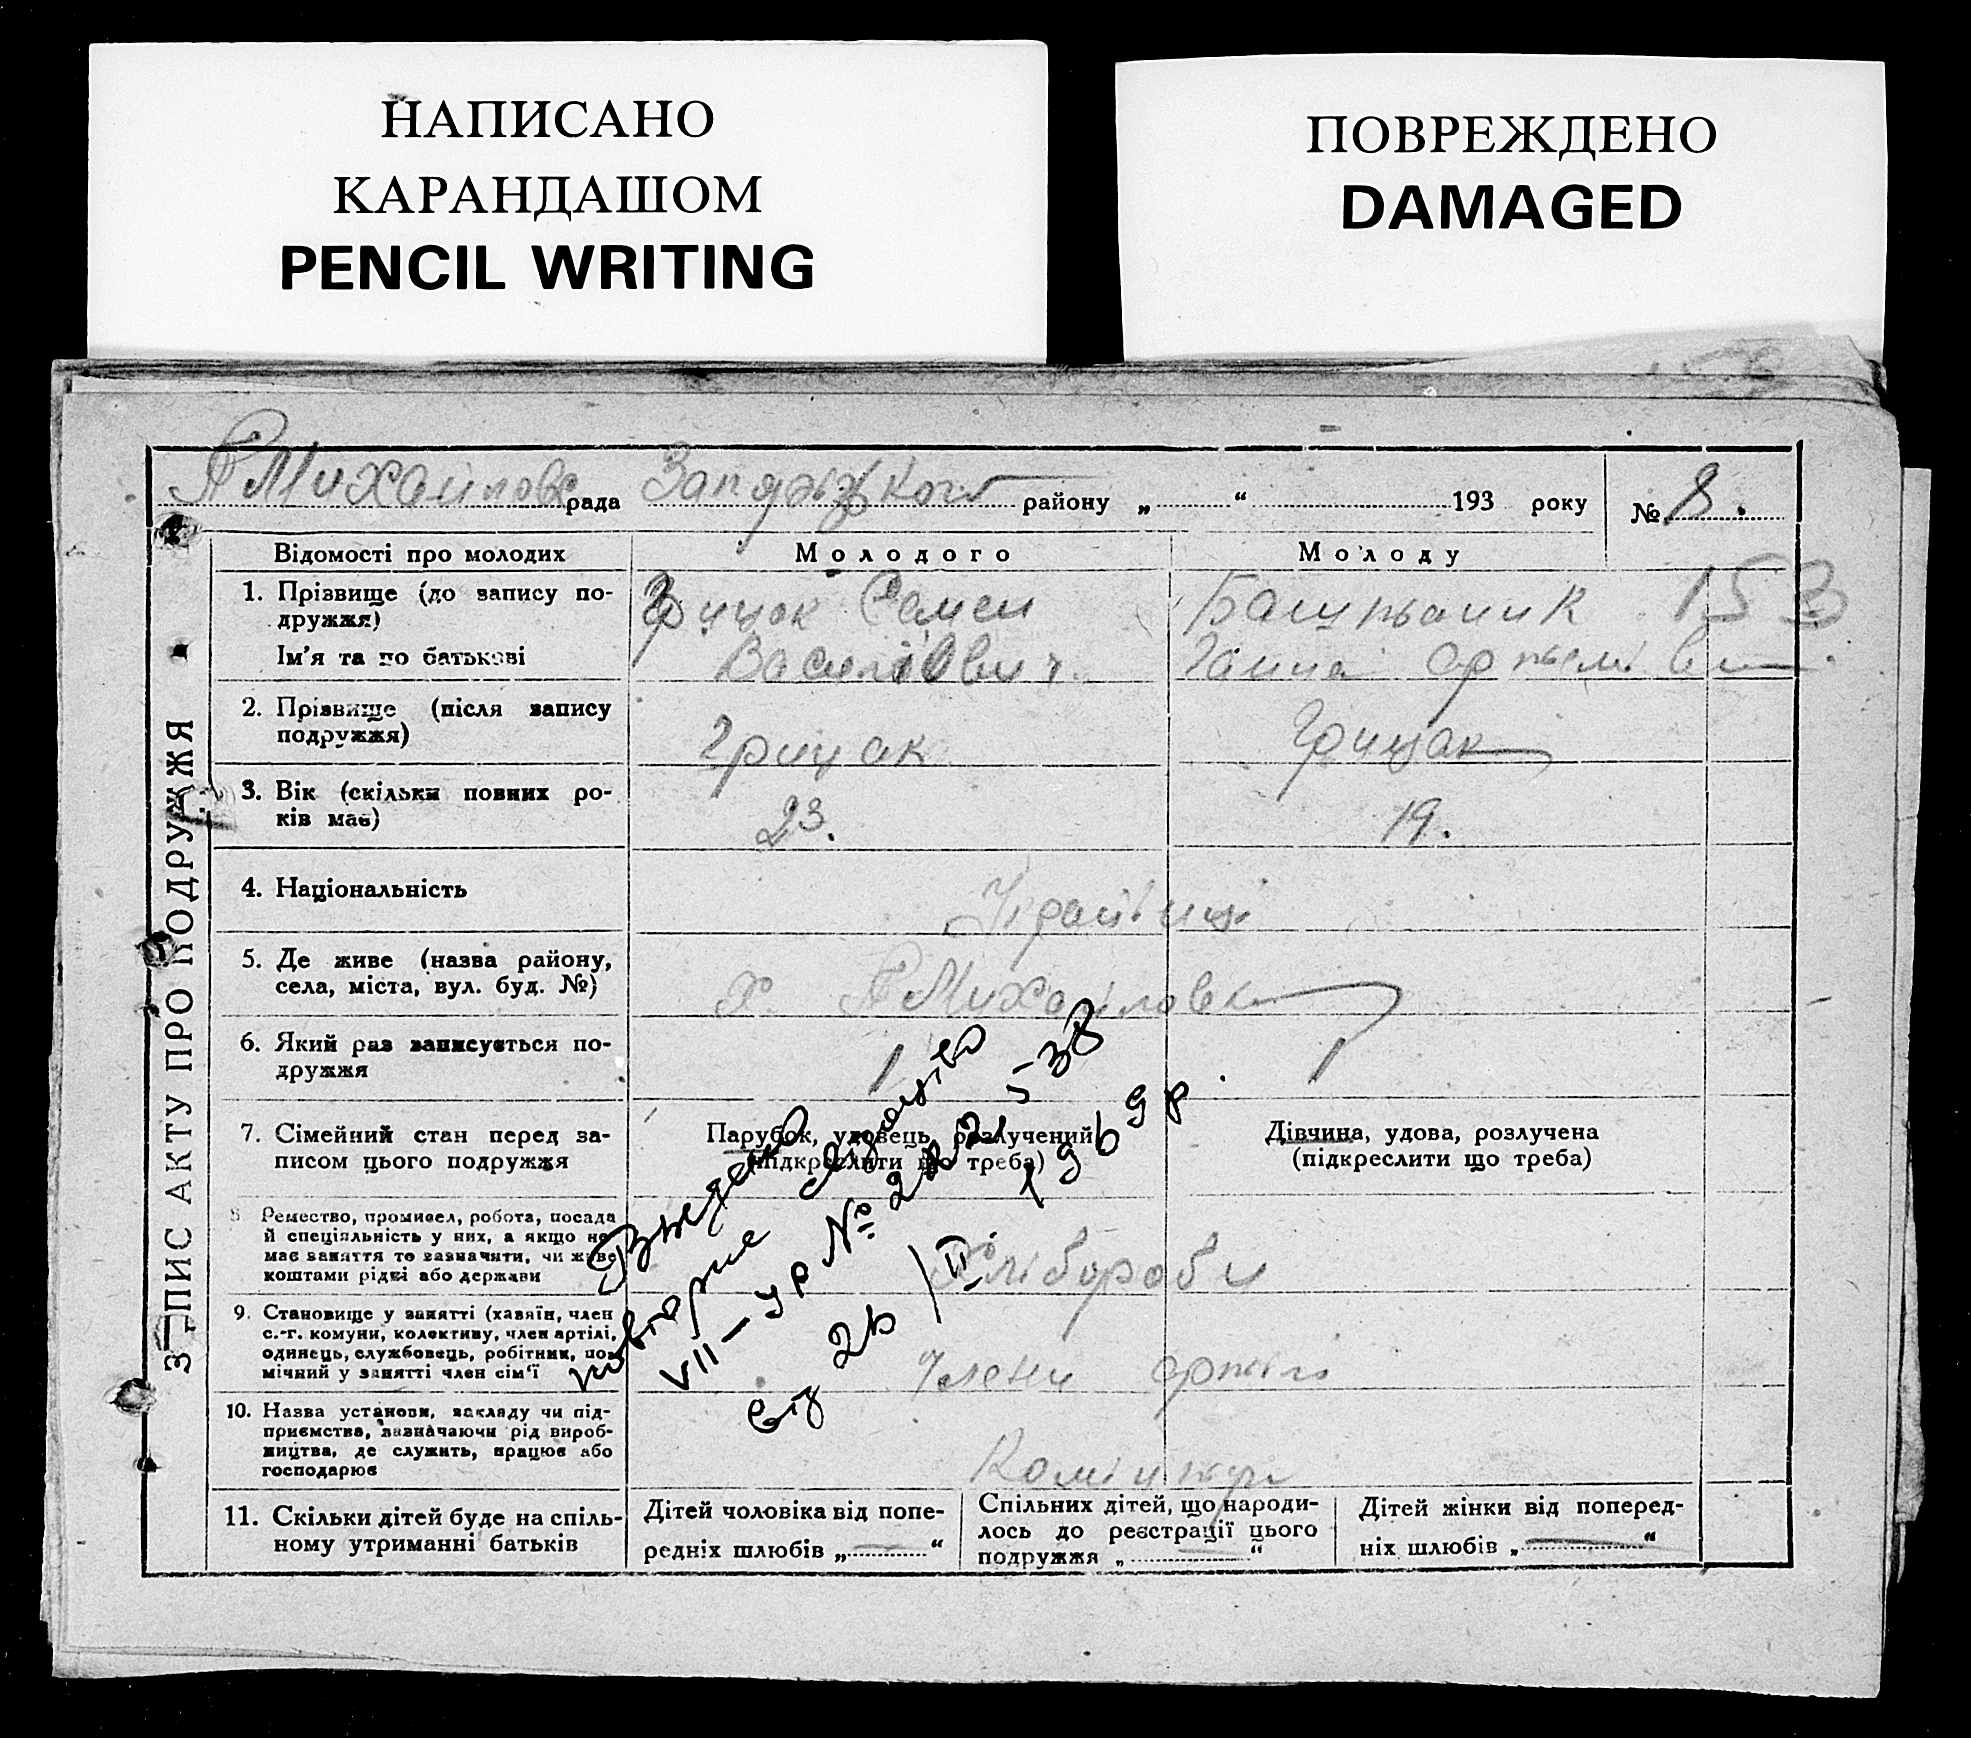 НАПИСАНО
КАРАНДАШОМ
PENCIL WRITING
ПОВРЕЖДЕНО
DAMAGED
рада району „ “ 193 року № 8.
ЗАПИС АКТУ ПРО ПОДРУЖЖЯ
Відомості про молодих Молодого Молоду
153
1. Прізвище (до запису по-
дружжя)
Ім'я та по батькові
Грицак Семен
Василівич
Ганна
2. Прізвище (після запису
подружжя)
Грицак Грицак
3. Вік (скільки повних ро-
ків має)
23. 19.
4. Національність
Українці
5. Де живе (назва району,
села, міста, вул. буд. №)
х. П Михайловка
6. Який раз записується по-
дружжя
1 1
7. Сімейний стан перед за-
писом цього подружжя
Парубок, удовець, розлучений
(підкреслити що треба)
Дівчина, удова, розлучена
(підкреслити що треба)
8 Ремество, промисел, робота, посада
й спеціяльність у них, а якщо не
має заняття то зазначити, чи живе
коштами рідні або держави
Хлібороби
9. Становище у занятті (хазяїн, член
с.-г. комуни, колективу, член артілі,
одинець, службовець, робітник, по-
мічний у занятті член сім'ї
Члени артіл
10. Назва установи, закладу чи під-
приємства, зазначаючи рід вироб-
ництва, де служить, працює або
господарює
11. Скільки дітей буде на спіль-
ному утриманні батьків
Дітей чоловіка від попе-
редніх шлюбів „ “
Спільних дітей, що народи-
лось до реєстрації цього
подружжя „ “
Дітей жінки від поперед-
ніх шлюбів „ “
повторне свідоцтво
VII-УР №
від 26/II 1969р.